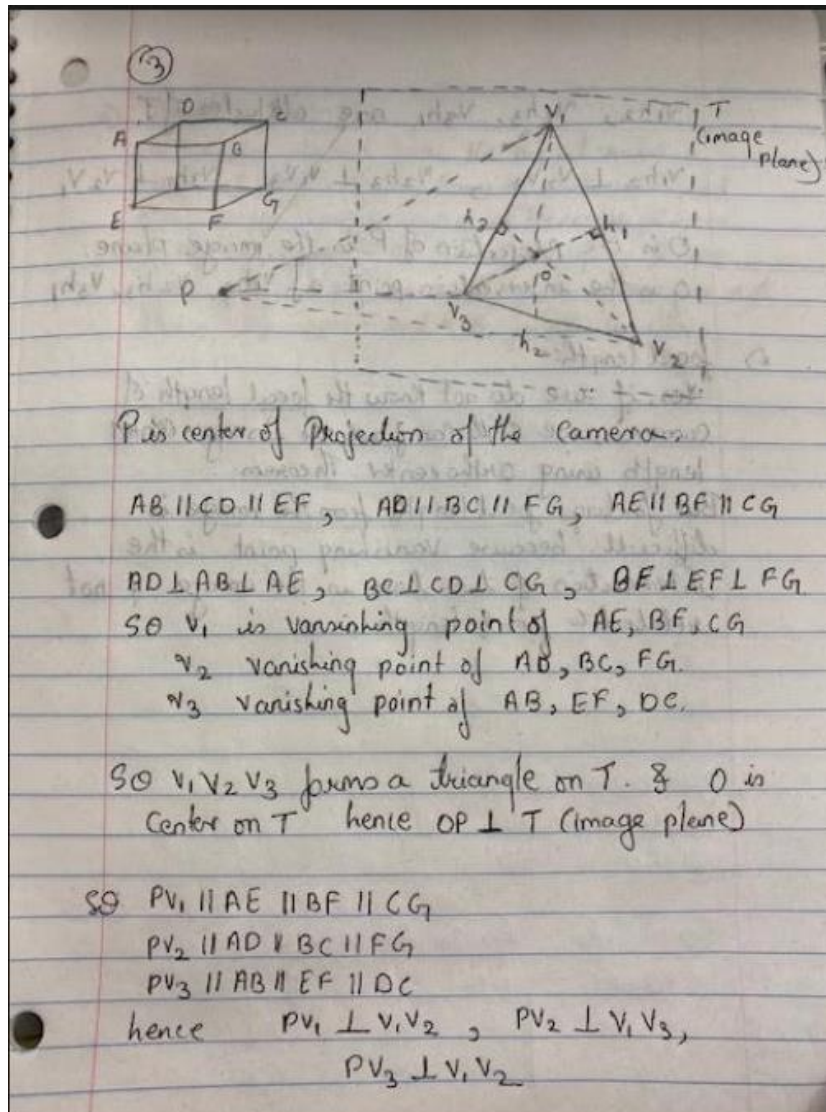 3
D
A
B
E
F
G
P
V₁
T
(image
plane)
h₂
h₁
O
V₃
h₂
V₂
P is center of Projection of the Camera.
AB || CD || EF, AD || BC || FG, AE || BF || CG
AD ⊥ AB ⊥ AE, BC ⊥ CD ⊥ CG, BF ⊥ EF ⊥ FG
SO V₁ is vansinhing point of AE, BF, CG
V₂ vanishing point of AD, BC, FG.
V₃ vanishing point of AB, EF, DC.
SO V₁ V₂ V₃ forms a triangle on T. & O is
Center on T hence OP ⊥ T (image plane)
SO PV₁ || AE || BF || CG
PV₂ || AD || BC || FG
PV₃ || AB || EF || DC
hence PV₁ ⊥ V₁V₂, PV₂ ⊥ V₁V₃,
PV₃ ⊥ V₁V₂